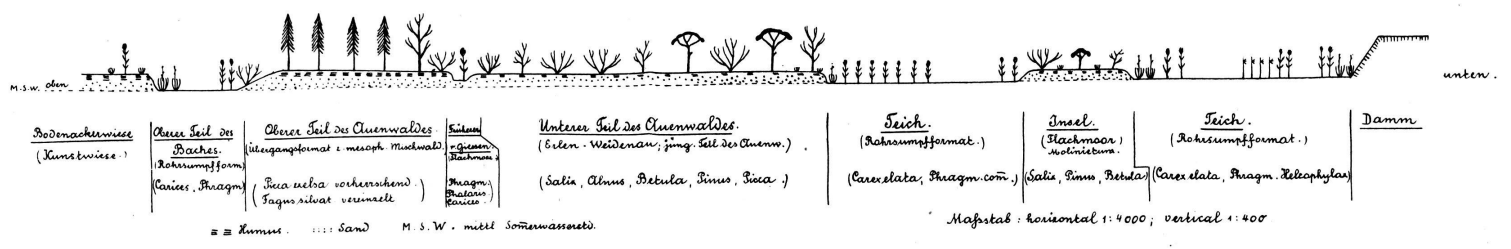 M.S.W. oben
unten.
Bodenackerwiese
(Kunstwiese.)
Oberer Teil des
Baches.
(Rohrsumpfform)
(Carices, Phragm)
Oberer Teil des Auenwaldes.
(Übergangsformat z. mesoph. Mischwald.)
(Picea excelsa vorherrschend.)
(Fagus silvat vereinzelt)
Früherer
r. Giessen
(Flachmoor)
Phragm.
Phalaris
Carices.)
Unterer Teil des Auenwaldes.
(Erlen-Weidenau; jüng. Teil des Auenw.)
(Salix, Alnus, Betula, Pinus, Picea.)
Teich.
(Rohrsumpfformat.)
(Carex elata, Phragm. com.)
Insel.
(Flachmoor)
Molinietum.
(Salix, Pinus, Betula)
Teich.
(Rohrsumpfformat.)
(Carex elata, Phragm. Heleophylax)
Damm
Humus. Sand M.S.W. = mittl Som̄erwasserstd.
Maßstab: horizontal 1:4000; vertical 1:400